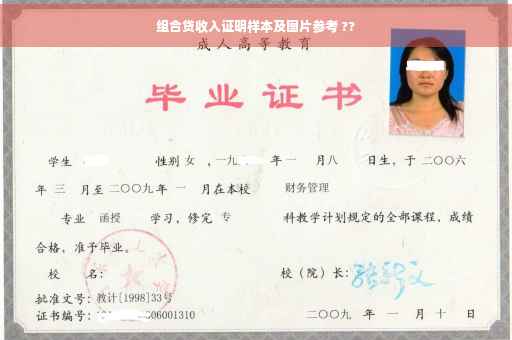 组合贷收入证明样本及图片参考 ??
成人高等教育
毕业证书
学生 性别 女 ，一九 年 一 月 八 日生，于 二〇〇六
年 三 月至 二〇〇九 年 一 月在本校 财务管理
专业 函授 学习，修完 专 科教学计划规定的全部课程，成绩
合格，准予毕业。
校 名： 校（院）长：
批准文号：教计[1998]33号
证书编号： 06001310 二〇〇九 年 一 月 十 日